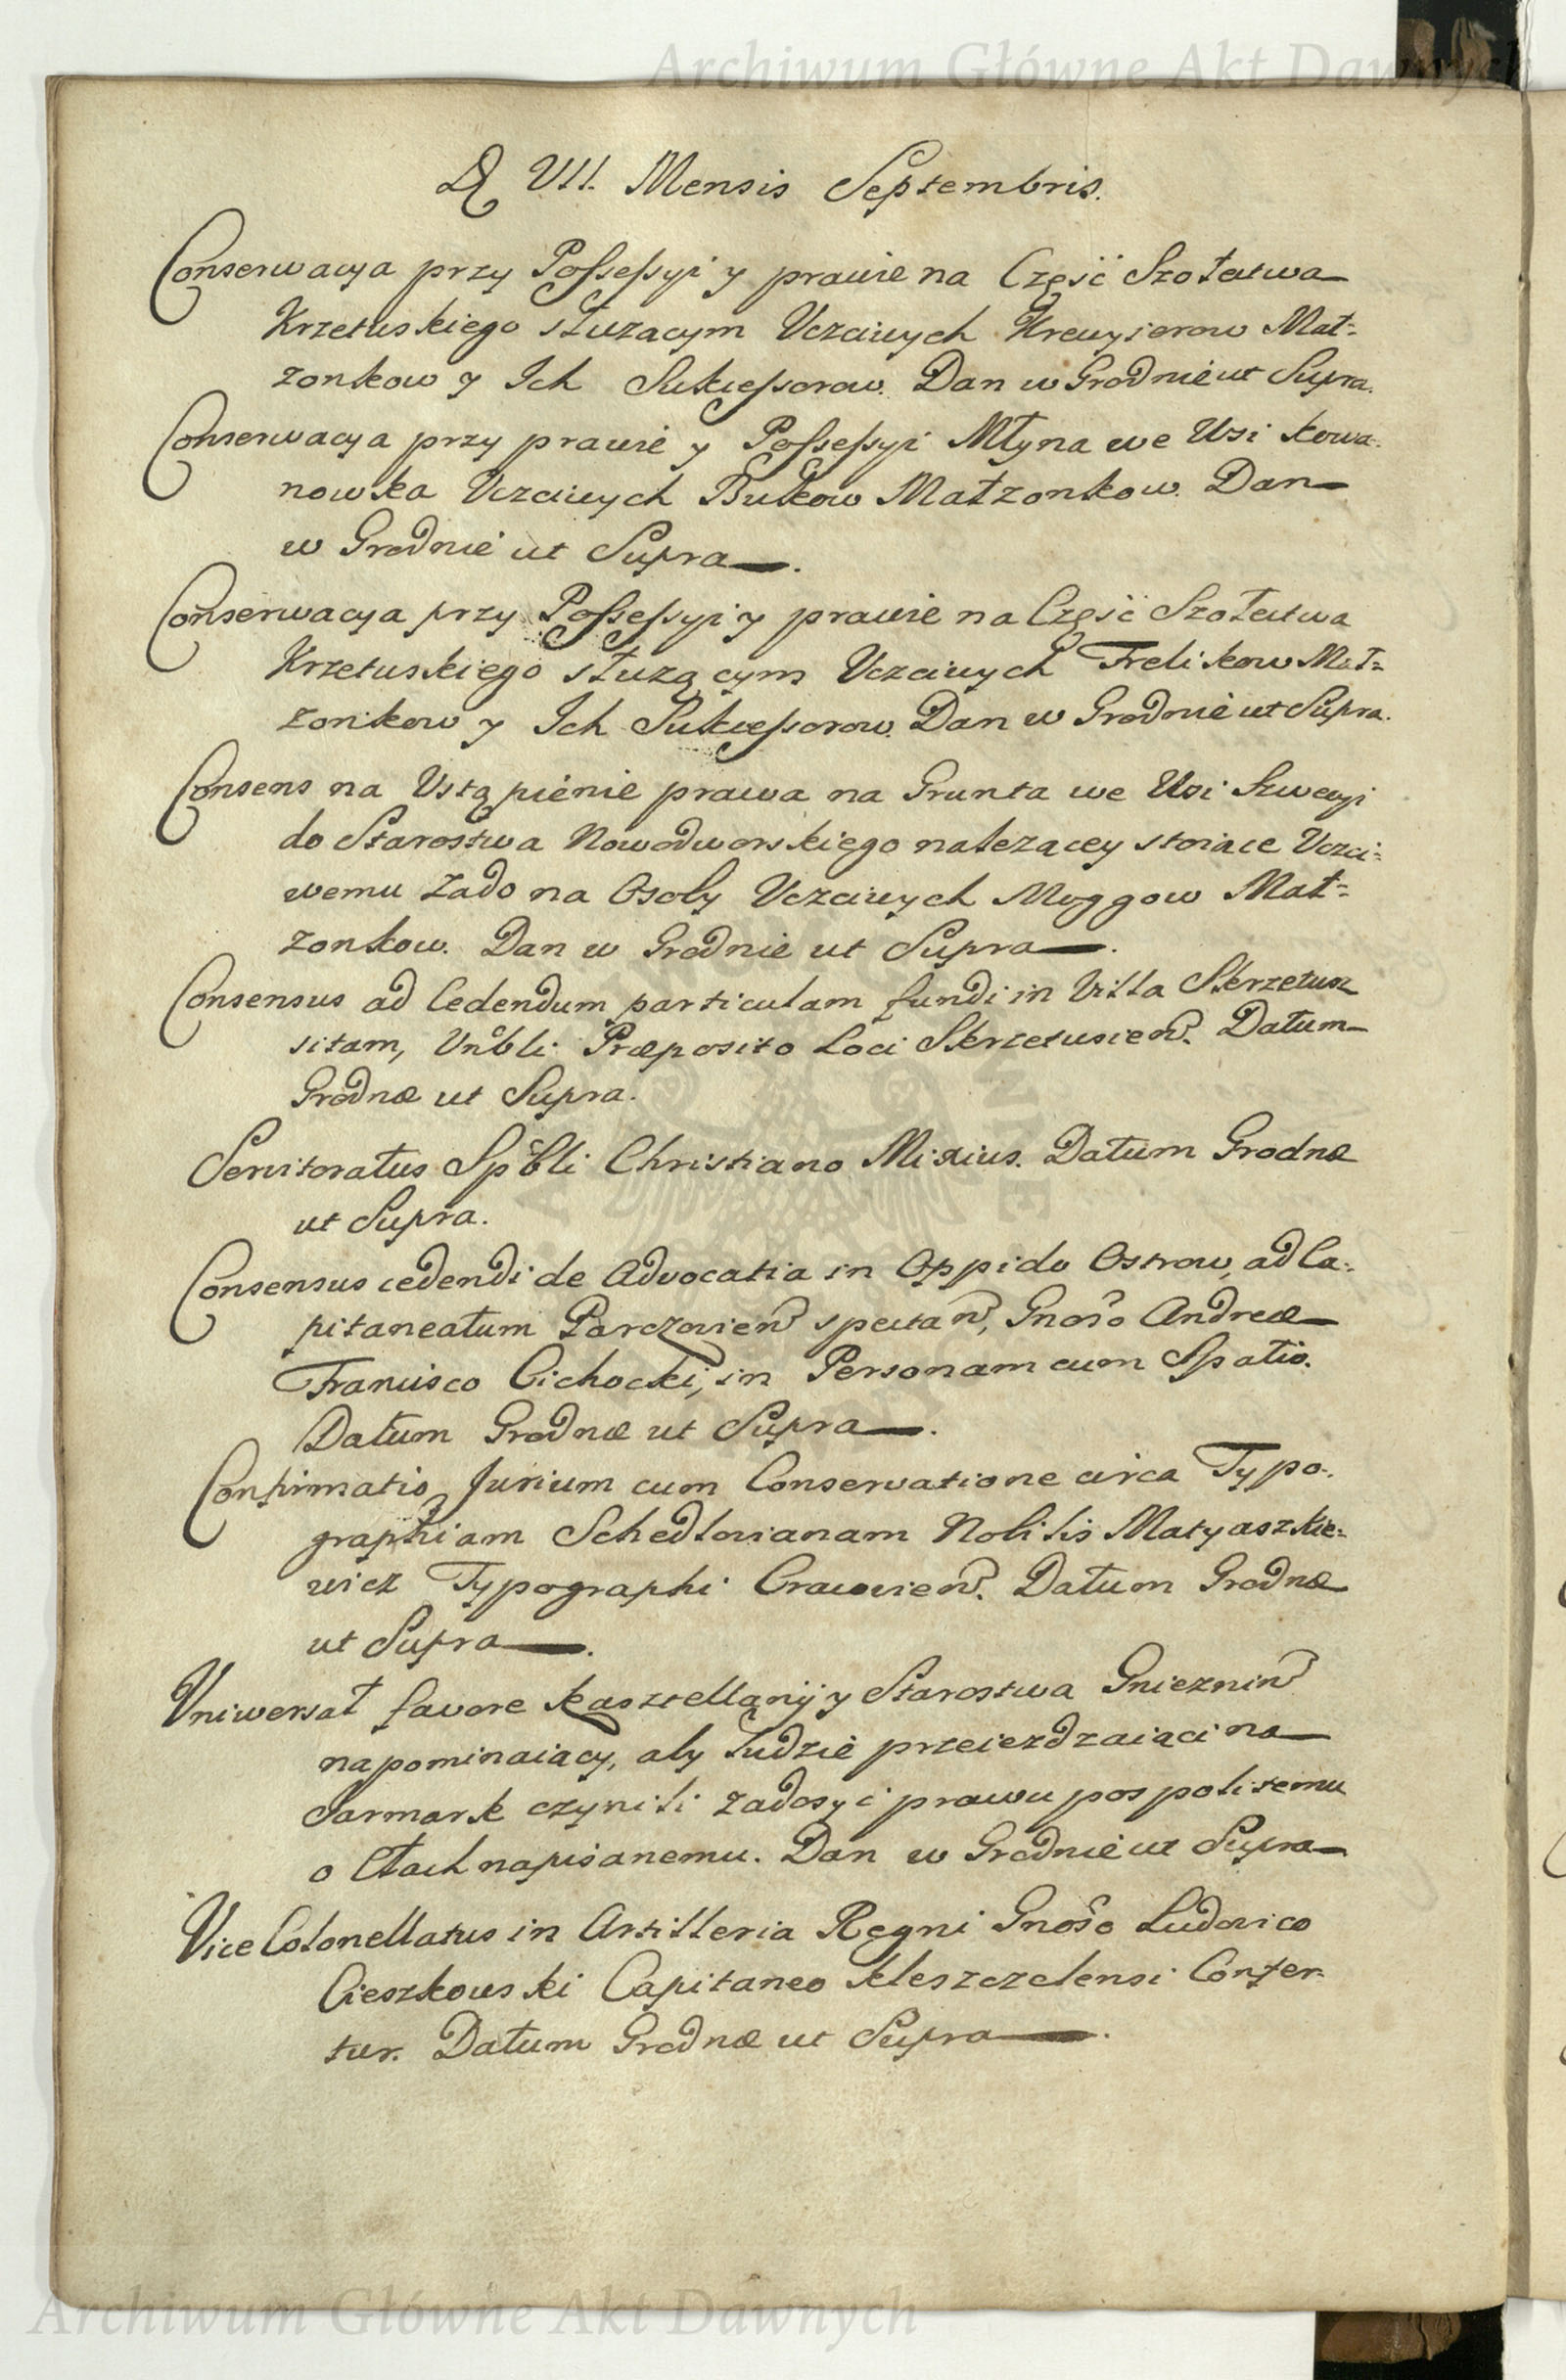 Archiwum Główne Akt Dawnych
D VII. Mensis Septembris.
Conserwacya przy Possessyi y prawie na Część Szołectwa
Krzetuskiego służacym Vczciwych Małzonkow
y Ich Sukcessorow. Dan w Grodnie ut Supra.
Conserwacya przy prawie y Possessyi Młyna we Wsi Kowa-
nowska Vczciwych Bukow Małzonkow. Dan
w Grodnie ut Supra.
Conserwacya przy Possessyi y prawie na Część Szołectwa
Krzetuskiego służącym Vczciwych Frelikow Mał=
zonkow y Ich Sukcessorow. Dan w Grodnie ut Supra.
Consens na Vstąpienie prawa na Grunta we Wsi Szwecyi
do Starostwa Nowodworskiego nalezacey stoiące Vczci=
wemu Zado na Osoby Vczciwych Moggow Mał=
zonkow. Dan w Grodnie ut Supra.
Consensus ad Cedendum particulam fundi in Villa Skrzetusz
sitam, Vnbli Præposito Loci Skrzetusien. Datum
Grodnæ ut Supra.
Servitoratus Spbli Christiano Mixius. Datum Grodnæ
ut Supra.
Consensus cedendi de Advocatia in Oppido Ostrow, ad Ca-
pitaneatum Parczovien spectan, Gnoso Andreæ
Francisco Cichocki, in Personam cum Spatio.
Datum Grodnæ ut Supra.
Confirmatio Jurium cum Conservatione circa Typo-
graphiam Schedlovianam Nobilis Matyaszkie-
wicz Typographi Cracovien. Datum Grodnæ
ut Supra.
Vniwersał favore Kasztellanij y Starostwa Gnieznin
napominaiący, aby ludzie przeiezdzaiąci na
Jarmark czynili zadosyć prawu pospolitemu
o Cłach napisanemu. Dan w Grodnie ut Supra
Vice Colonellatus in Artilleria Regni Gnoso Ludovico
Cieszkowski Capitaneo Kleszczelensi Confer-
tur. Datum Grodnæ ut Supra.
Archiwum Główne Akt Dawnych